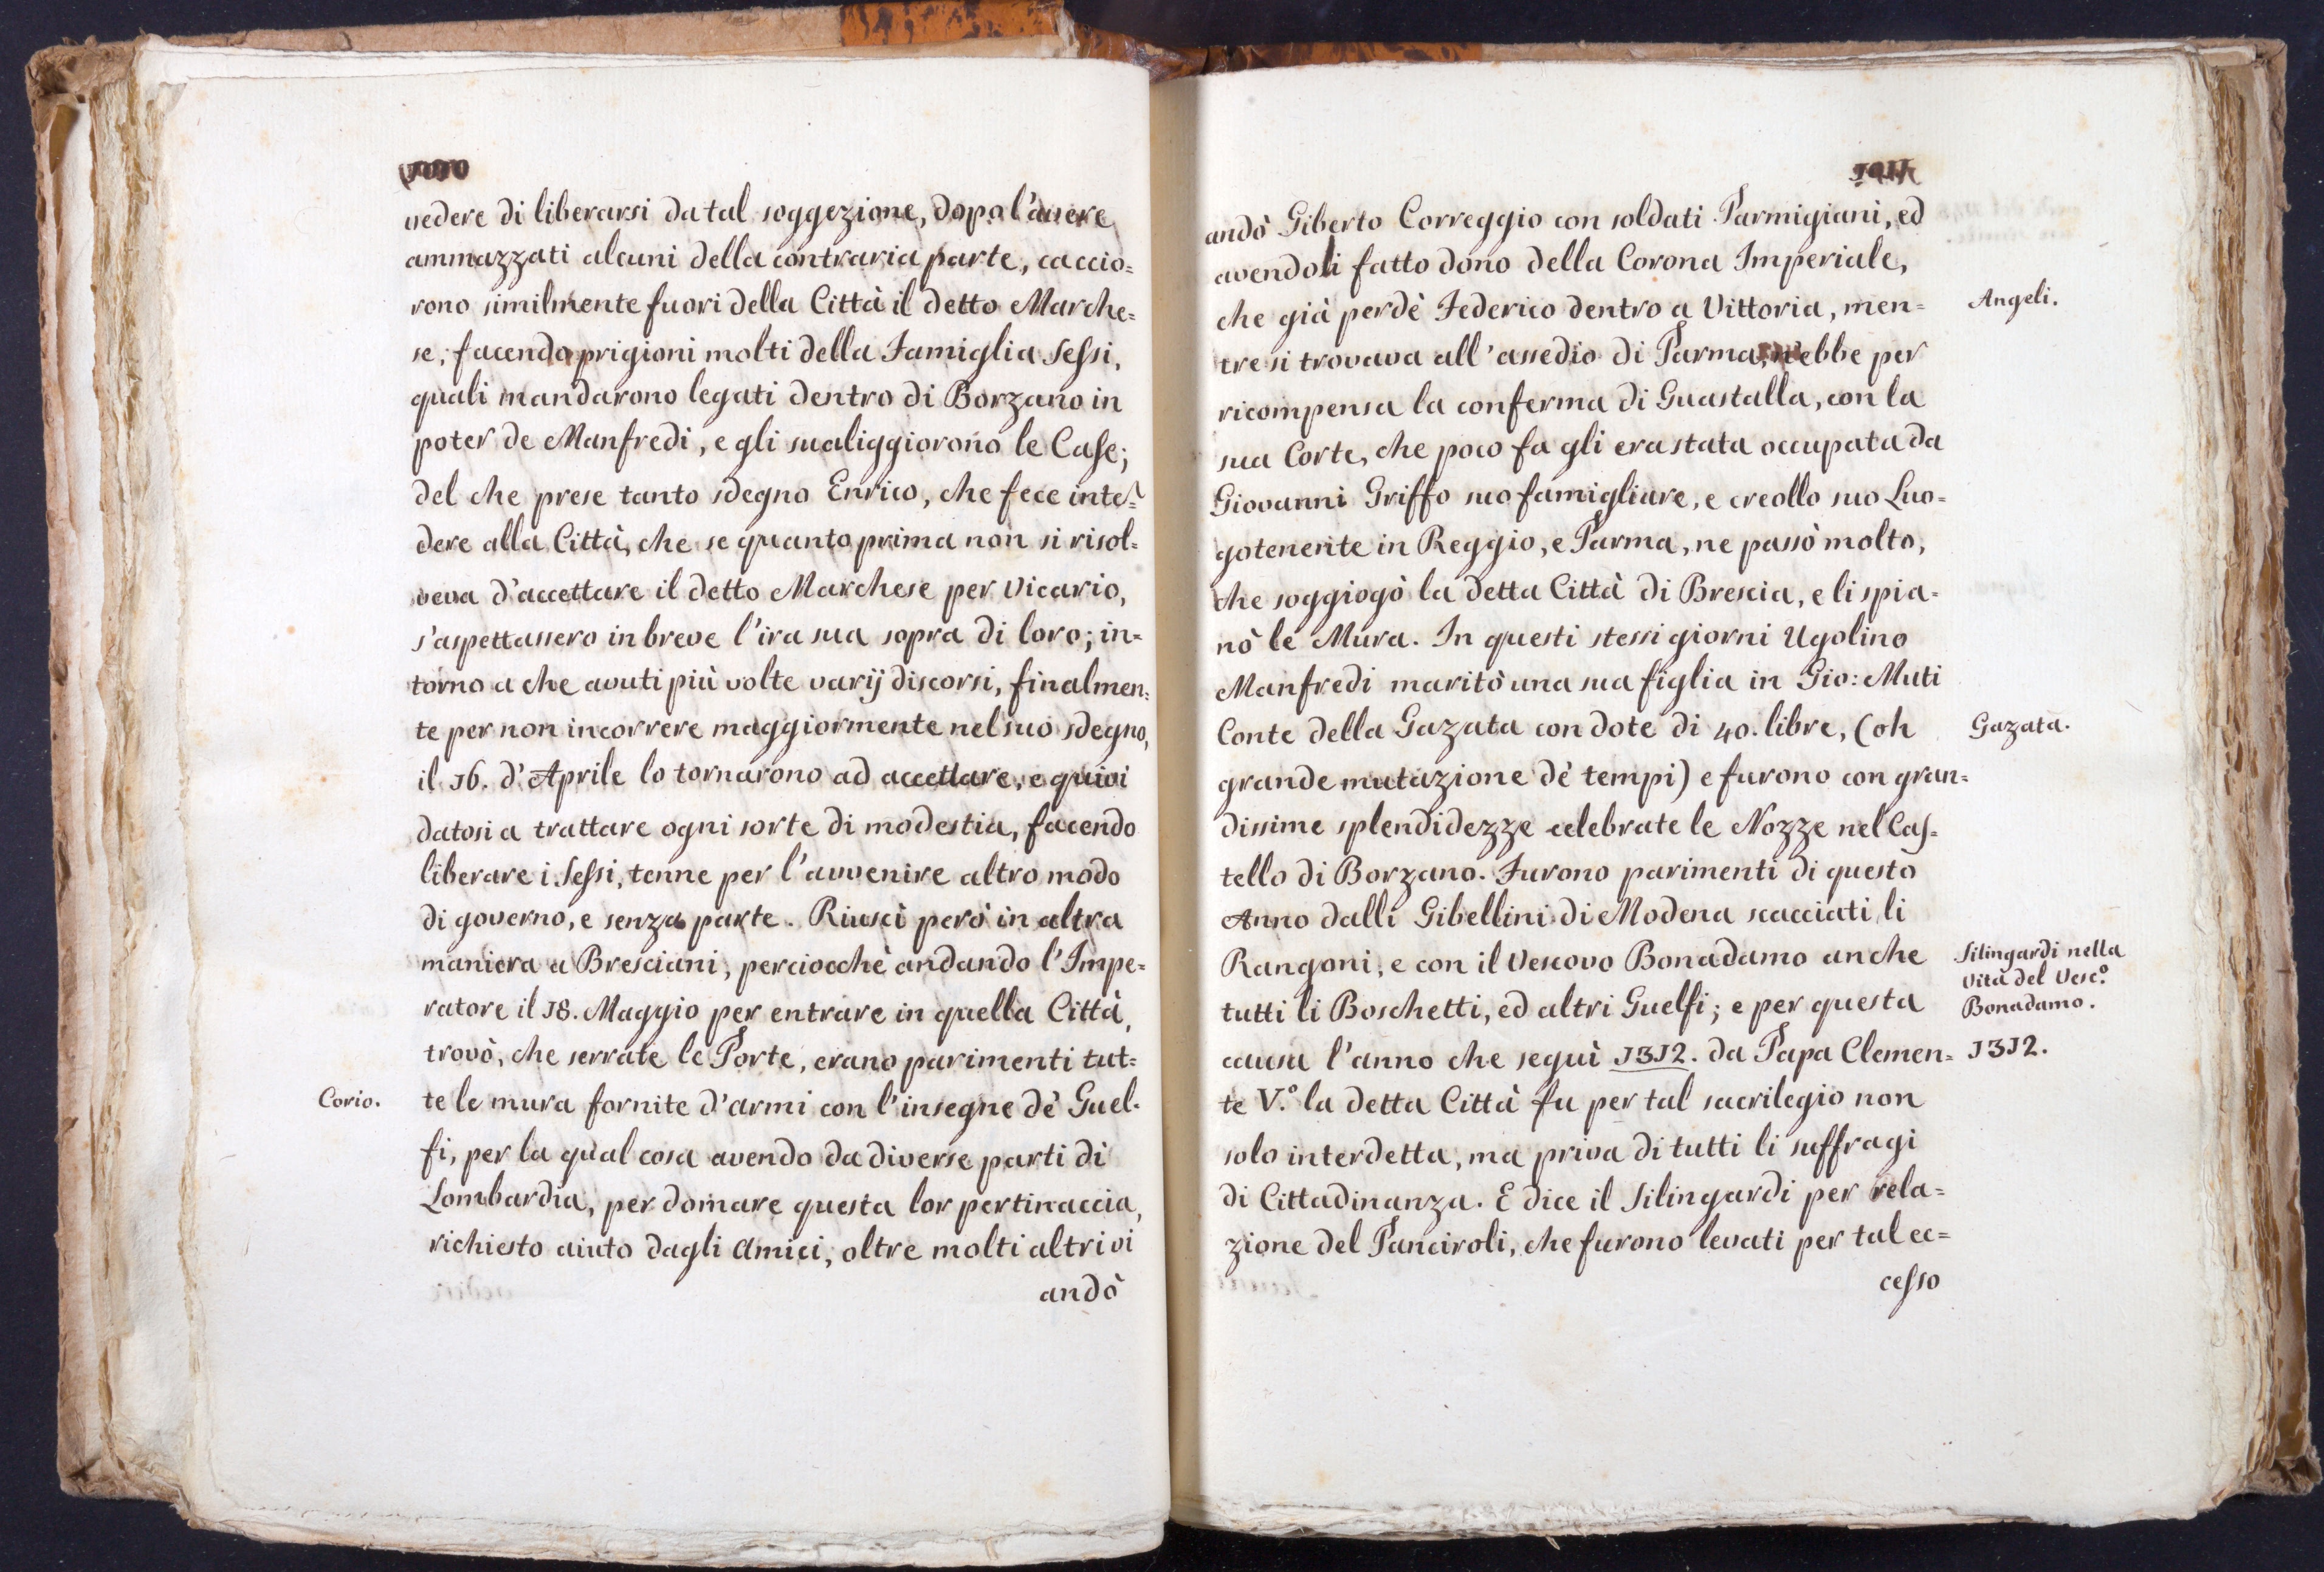 vedere di liberarsi da tal soggezione, dopo l'avere
ammazzati alcuni della contraria parte, caccio=
rono similmente fuori della Città il detto Marche=
se, facendo prigioni molti della Famiglia Sessi,
quali mandarono legati dentro di Borzano in
poter de Manfredi, e gli sualiggiorono le Case;
del che prese tanto sdegno Enrico, che fece inte͂=
dere alla Città, che se quanto prima non si risol=
veva d'accettare il detto Marchese per Vicario,
s'aspettassero in breve l'ira sua sopra di loro; in=
torno a che avuti più volte varij discorsi, finalmen=
te per non incorrere maggiormente nel suo sdegno,
il 16. d'Aprile lo tornarono ad accettare, e quivi
datosi a trattare ogni sorte di modestia, facendo
liberare i Sessi, tenne per l'avvenire altro modo
di governo, e senza parte. Riuscì però in altra
maniera a Bresciani, perciocchè andando l'Impe=
ratore il 18. Maggio per entrare in quella Città,
trovò, che serrate le Porte, erano parimenti tut=
Corio.
te le mura fornite d'armi con l'insegne dè Guel=
fi, per la qual cosa avendo da diverse parti di
Lombardia, per domare questa lor pertinaccia,
richiesto aiuto dagli Amici, oltre molti altri vi
andò
andò Giberto Correggio con soldati Parmigiani, ed
avendoli fatto dono della Corona Imperiale,
che già perdè Federico dentro a Vittoria, men=
Angeli.
tre si trovava all'assedio di Parma, n'ebbe per
ricompensa la conferma di Guastalla, con la
sua Corte, che poco fa gli era stata occupata da
Giovanni Griffo suo famigliare, e creollo suo Luo=
gotenente in Reggio, e Parma, ne passò molto,
che soggiogò la detta Città di Brescia, e li spia=
nò le Mura. In questi stessi giorni Ugolino
Manfredi maritò una sua figlia in Gio: Muti
Conte della Gazata con dote di 40. libre, (oh
Gazata.
grande mutazione dè tempi) e furono con gran=
dissime splendidezze celebrate le Nozze nel Cas=
tello di Borzano. Furono parimenti di questo
Anno dalli Gibellini di Modena scacciati li
Rangoni, e con il Vescovo Bonadamo anche
tutti li Boschetti, ed altri Guelfi; e per questa
Silingardi nella
Vita del Vesc.º
Bonadamo.
causa l'anno che seguì 1312. da Papa Clemen=
1312.
te V.º la detta Città fu per tal sacrilegio non
solo interdetta, ma priva di tutti li suffragi
di Cittadinanza. E dice il Silingardi per rela=
zione del Panciroli, che furono levati per tal ec=
cesso